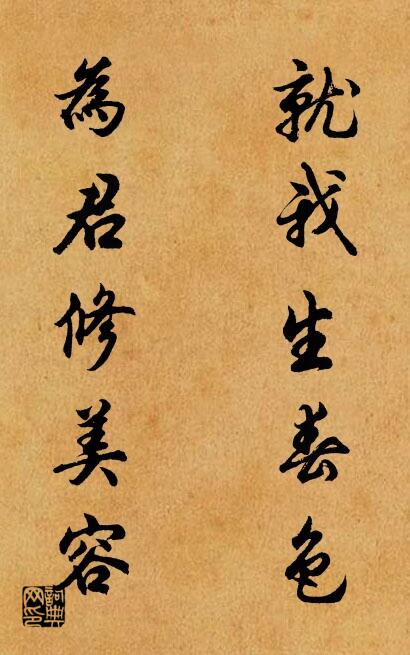 就我生春色
為君修美容